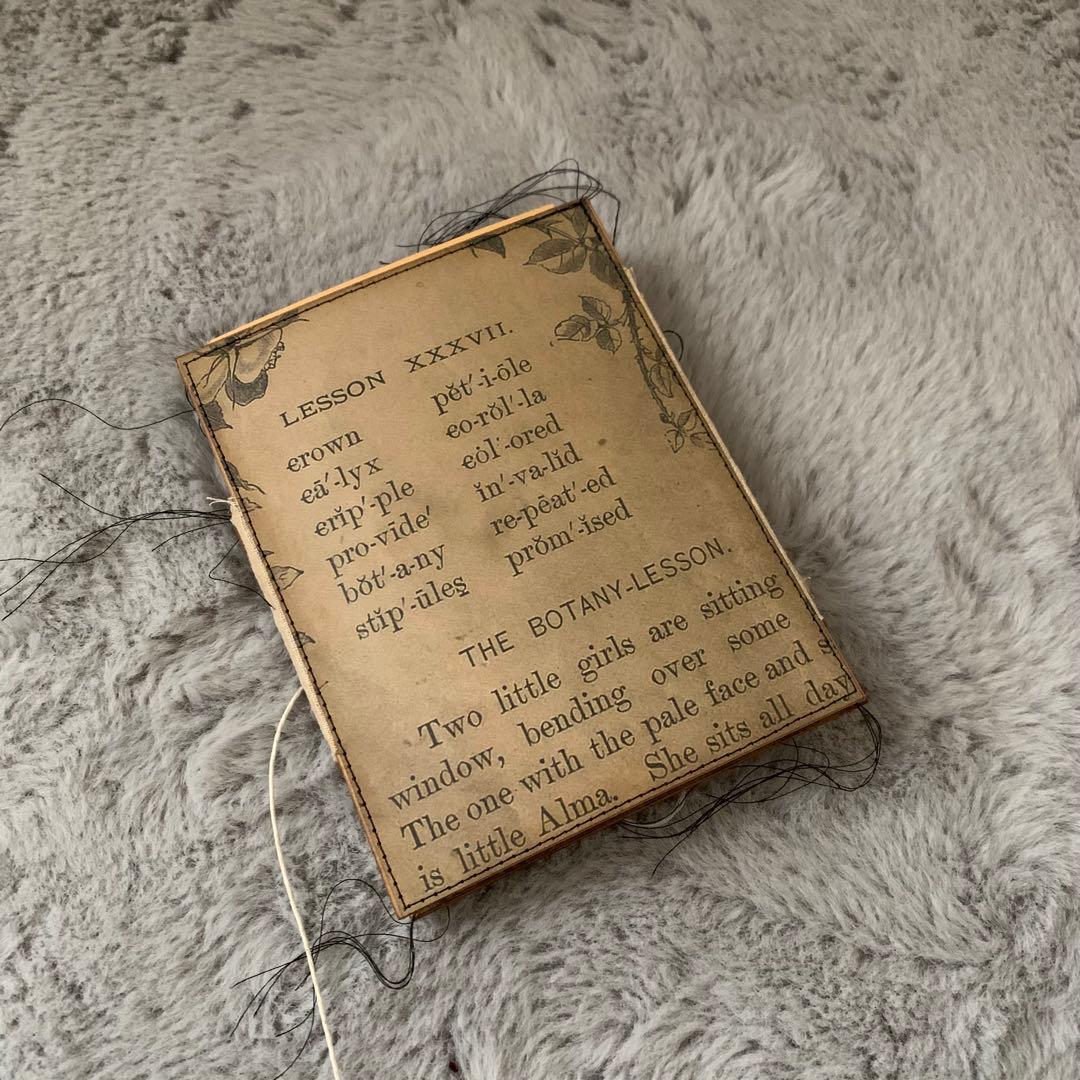 LESSON XXXVII.
ꞓrown pĕt′-i-ōle
ꞓā′-lyx ꞓo-rŏl′-la
ꞓrĭp′-ple ꞓȯl′-ored
pro-vīde′ ĭn′-va-lĭd
bŏt′-a-ny re-pēat′-ed
stĭp′-ūleş prŏm′-ĭsed
THE BOTANY-LESSON.
Two little girls are sitting
window, bending over some
The one with the pale face and
is little Alma. She sits all day